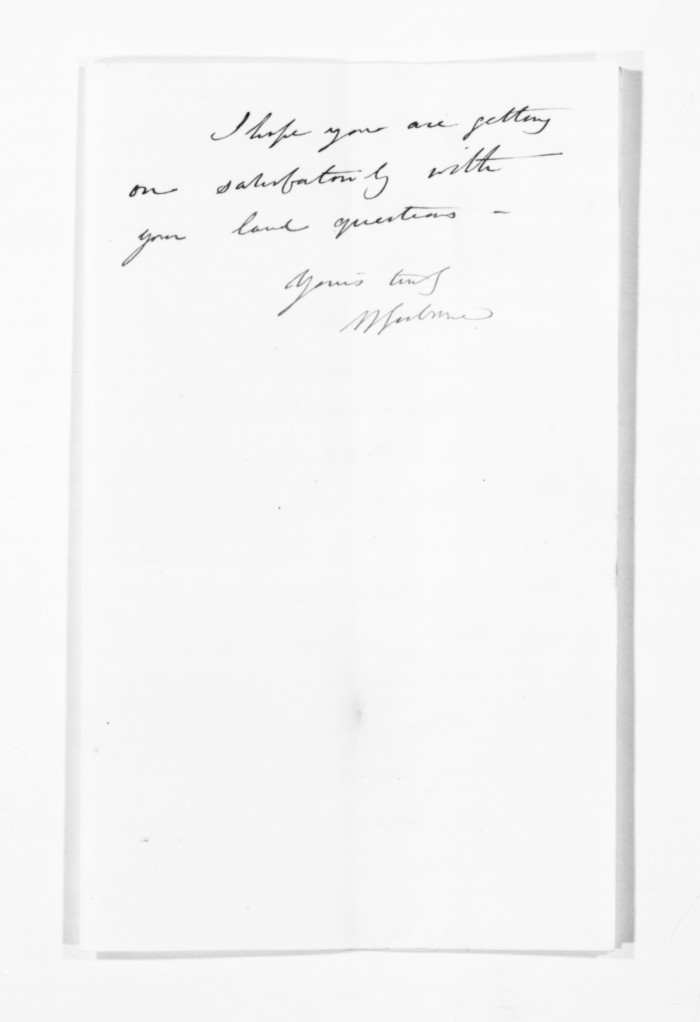 I hope you are getting
on satisfactorily with
your land questions -
Yours truly